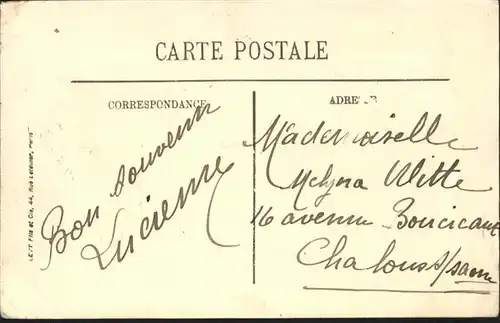 CARTE POSTALE
CORRESPONDANCE
Bon souvenir
Lucienne
ADRE
Mademoiselle
Melyna Witte
16 avenue Boucicaut
Chalons s/saone
Fils et Cie, 44, Rue Letellier, Paris